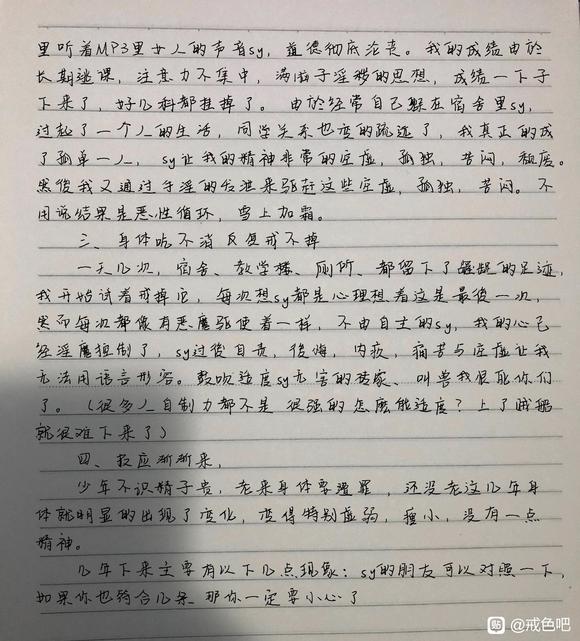 里听着MP3里女人的声音sy，道德彻底沦丧。我的成绩由於
长期逃课，注意力不集中，满脑子淫秽的思想，成绩一下子
下来了，好几科都挂掉了。由於经常自己躲在宿舍里sy，
过起了一个人的生活，同学关系也变的疏远了，我真正的成
了孤单一人，sy让我的精神非常的空虚，孤独，苦闷，颓废。
然後我又通过手淫的发泄来驱赶这些空虚，孤独，苦闷。不
用说结果是恶性循环，雪上加霜。
三、身体吃不消 反复戒不掉
一天几次，宿舍、教学楼、厕所、都留下了龌龊的足迹，
我开始试着戒掉它，每次想sy都是心理想着这是最後一次，
然而每次都像有恶魔驱使着一样，不由自主的sy，我的心已
经淫魔控制了，sy过後自责，後悔，内疚，痛苦与空虚让我
无法用语言形容。鼓吹适度sy无害的砖家、叫兽我恨死你们
了。（很多人自制力都不是很强的怎麽能适度？上了贼船
就很难下来了）
四、报应渐渐来，
少年不识精子贵，老来身体要遭罪，还没老这几年身
体就明显的出现了变化，变得特别虚弱，瘦小，没有一点
精神。
几年下来主要有以下几点现象：sy的朋友可以对照一下，
如果你也符合几条 那你一定要小心了
贴 @戒色吧